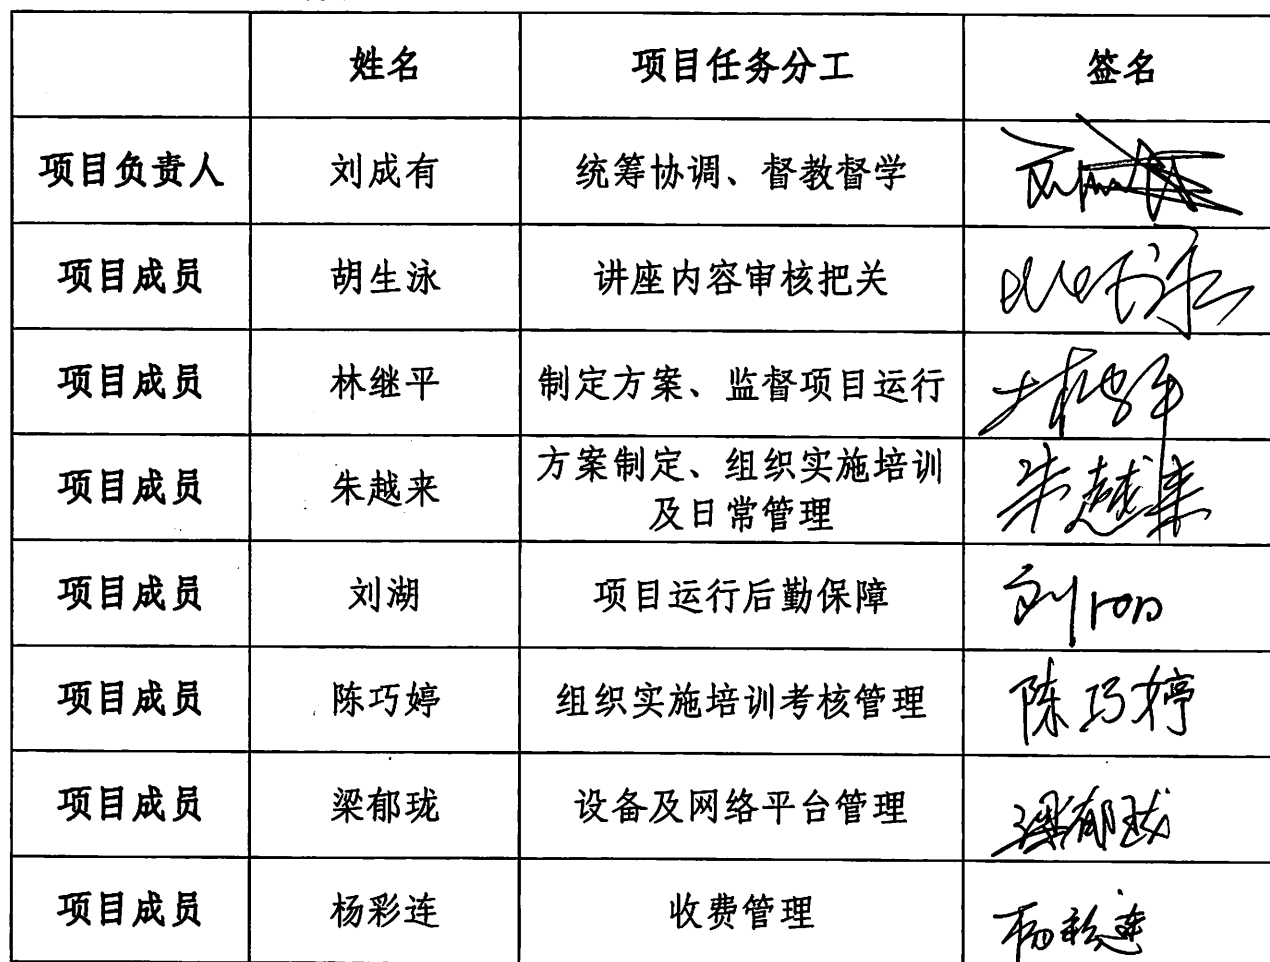 姓名 项目任务分工 签名
项目负责人 刘成有 统筹协调、督教督学
项目成员 胡生泳 讲座内容审核把关
项目成员 林继平 制定方案、监督项目运行
项目成员 朱越来 方案制定、组织实施培训
及日常管理 朱越来
项目成员 刘湖 项目运行后勤保障
项目成员 陈巧婷 组织实施培训考核管理 陈巧婷
项目成员 梁郁珑 设备及网络平台管理 梁郁珑
项目成员 杨彩连 收费管理 杨彩连